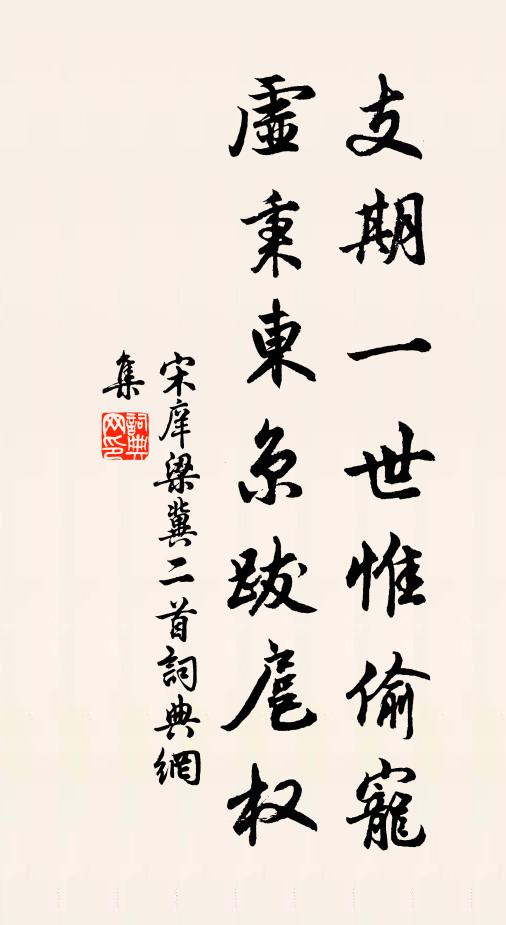 支期一世惟偷寵
虛秉東京跋扈权
宋庠梁冀二首詞典網
集
詞典
网印